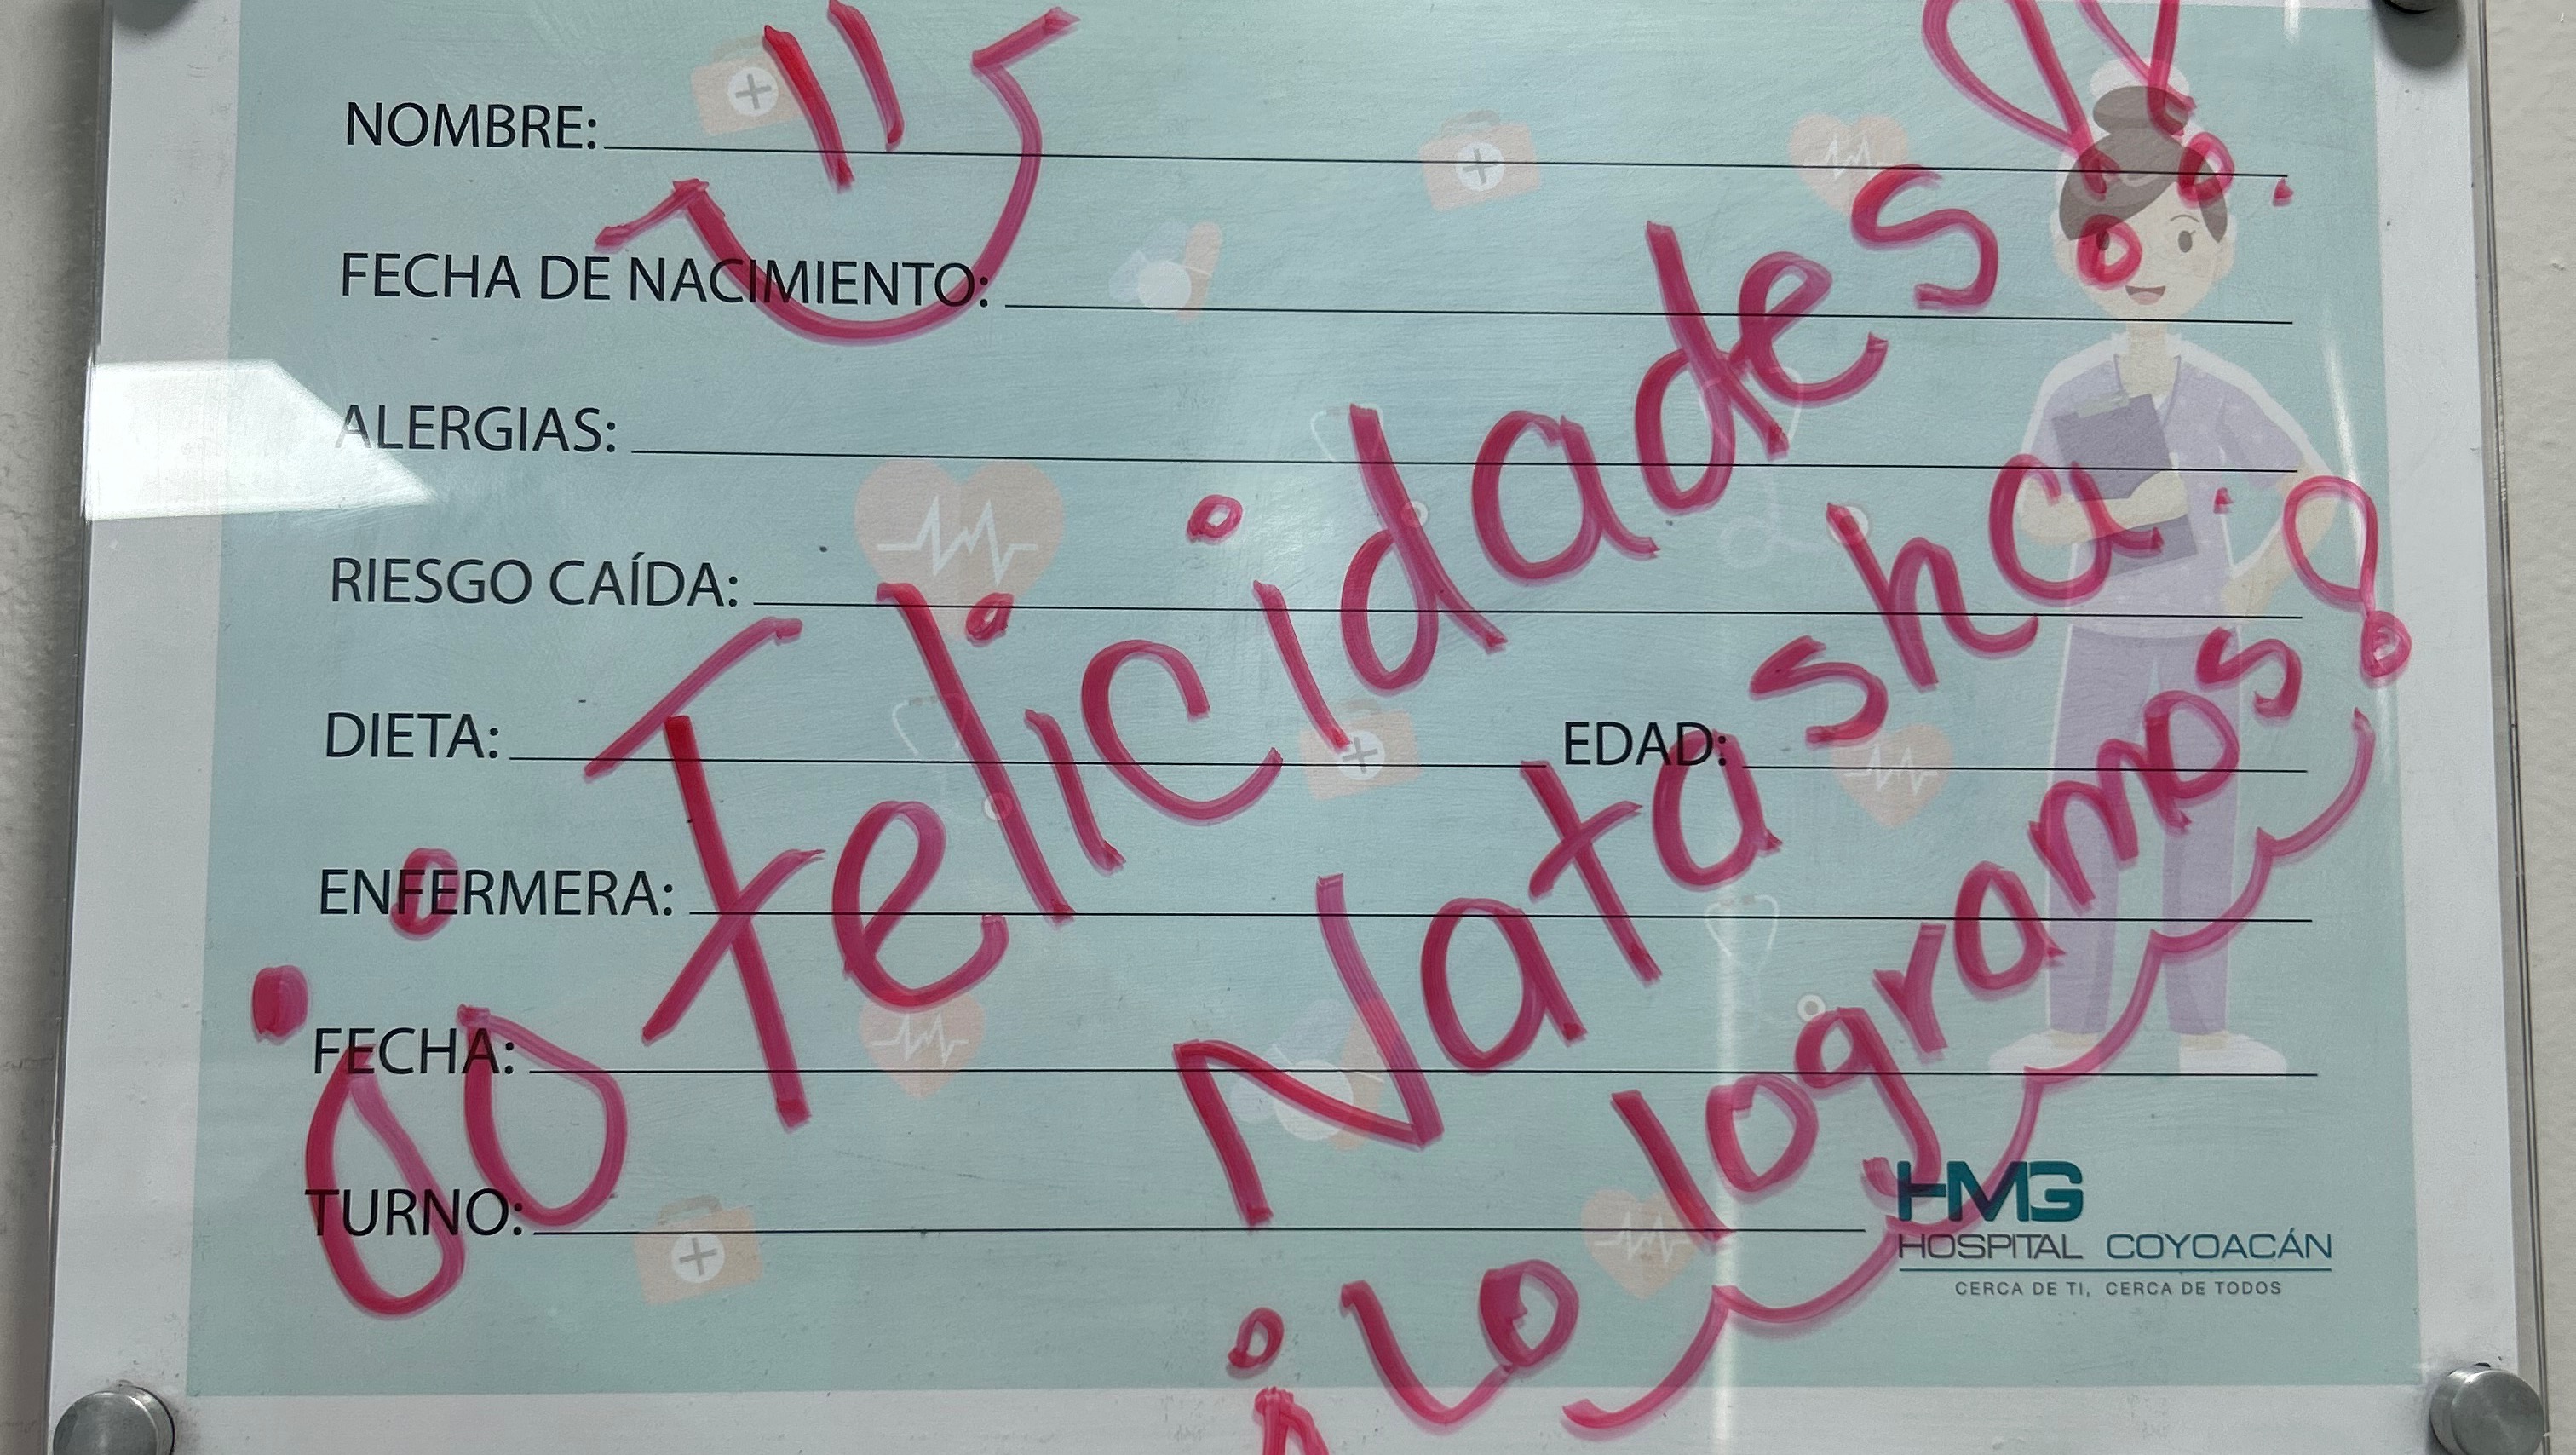 NOMBRE:
FECHA DE NACIMIENTO:
ALERGIAS:
RIESGO CAÍDA:
DIETA: EDAD:
ENFERMERA:
FECHA:
TURNO:
¡¡Felicidades!!
Natasha.
¡Lo logramos!
HMG
HOSPITAL COYOACÁN
CERCA DE TI, CERCA DE TODOS